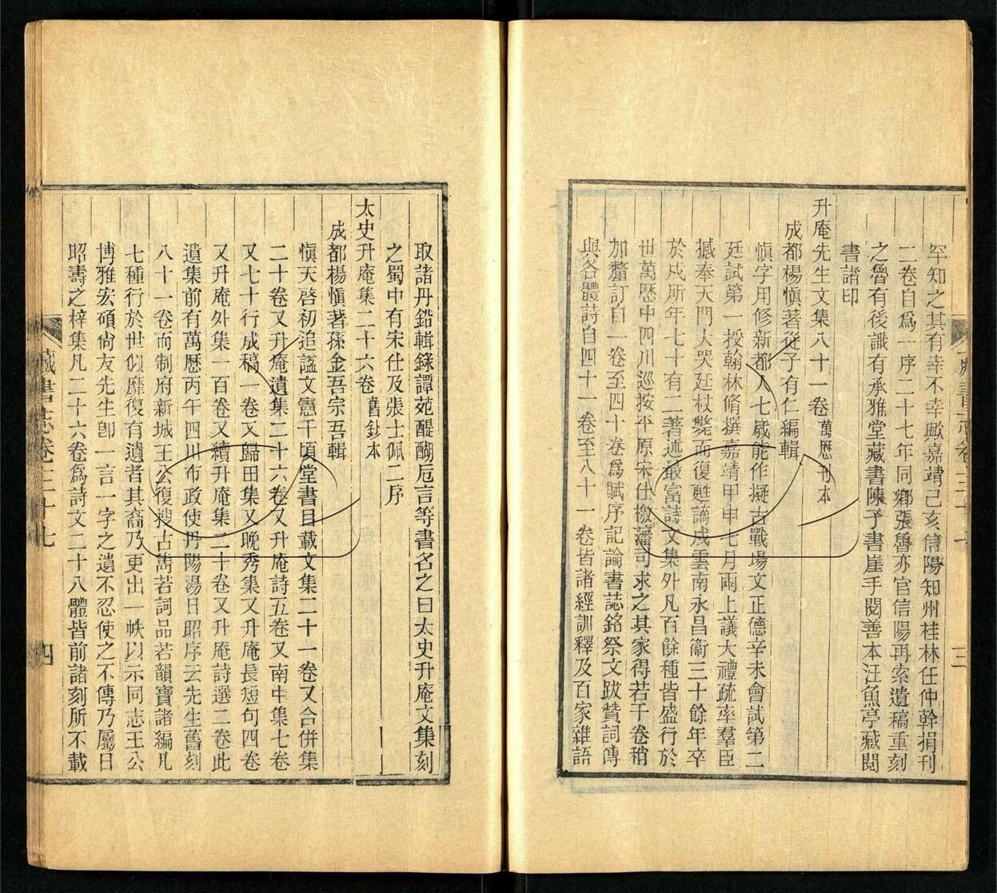 罕知之其有幸不幸歟嘉靖己亥信陽知州桂林任仲幹捐刊
二卷自爲一序二十七年同鄉張魯亦官信陽再索遺稿重刻
之魯有後識有承雅堂藏書陳子書崖手閱善本汪魚亭藏閱
書諸印
升庵先生文集八十一卷萬歷刊本
成都楊愼著從子有仁編輯
愼字用修新都人七歲能作擬古戰場文正德辛未會試第二
廷試第一授翰林脩撰嘉靖甲申七月兩上議大禮疏率羣臣
撼奉天門大哭廷杖斃而復甦謫戍雲南永昌衞三十餘年卒
於戍所年七十有二著述最富詩文集外凡百餘種皆盛行於
世萬歷中四川巡按平原宋仕檄藩司求之其家得若干卷稍
加釐訂自一卷至四十卷爲賦序記論書誌銘祭文跋贊詞傳
與各體詩自四十一卷至八十一卷皆諸經訓釋及百家雜語
取諸丹鉛輯錄譚苑醍醐卮言等書名之曰太史升庵文集刻
之蜀中有宋仕及張士佩二序
太史升庵集二十六卷舊鈔本
成都楊愼著孫金吾宗吾輯
愼天啓初追諡文憲千頃堂書目載文集二十一卷又合併集
二十卷又升庵遺集二十六卷又升庵詩五卷又南中集七卷
又七十行戍稿一卷又歸田集又晚秀集又升庵長短句四卷
又升庵外集一百卷又續升庵集二十卷又升庵詩選二卷此
遺集前有萬歷丙午四川布政使丹陽湯日昭序云先生舊刻
八十一卷而制府新城王公復搜占雋若詞品若韻寶諸編凡
七種行於世似靡復有遺者其裔乃更出一帙以示同志王公
博雅宏碩尙友先生卽一言一字之遺不忍使之不傳乃屬日
昭壽之梓集凡二十六卷爲詩文二十八體皆前諸刻所不載
藏書志卷三十七
四